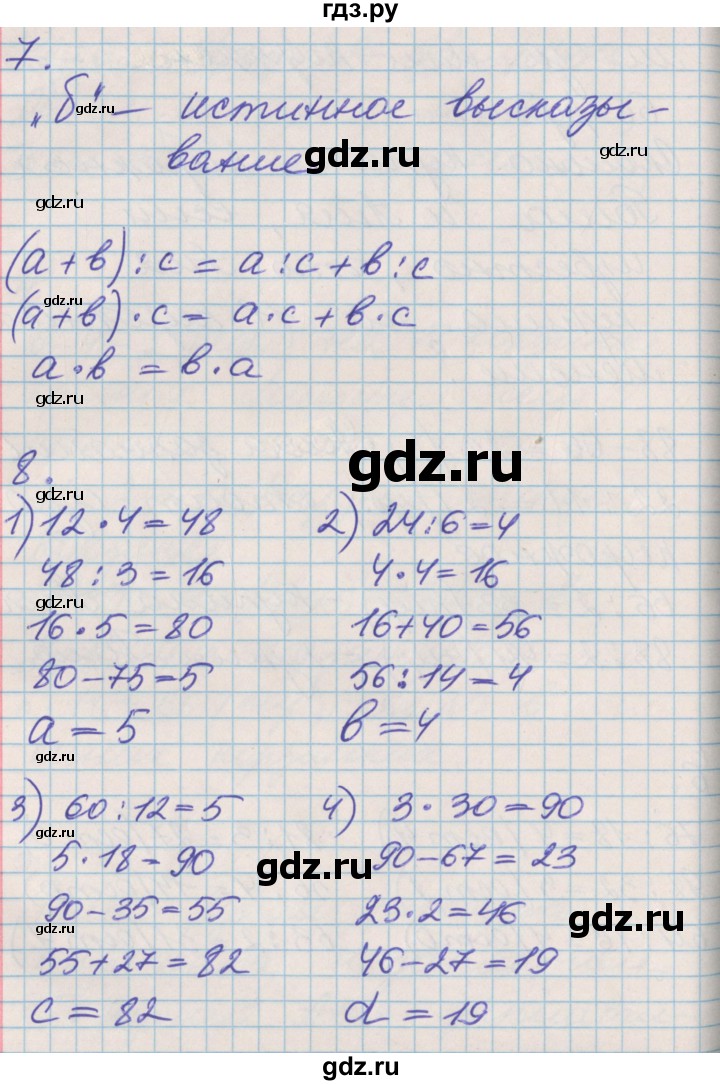 гдз.ру
7.
„б“ — истинное высказы-
gdz.ru
gdz.ru
вание
gdz.ru
gdz.ru
(а + в) : с = а : с + в : с
gdz.ru
(а + в) · с = а · с + в · с
а · в = в · а
gdz.ru
8.
gdz.ru
1) 12 · 4 = 48
48 : 3 = 16
gdz.ru
16 · 5 = 80
80 - 75 = 5
а = 5
gdz.ru
2) 24 : 6 = 4
gdz.ru
4 · 4 = 16
16 + 40 = 56
56 : 14 = 4
в = 4
3) 60 : 12 = 5
gdz.ru
5 · 18 - 90
gdz.ru
90 - 35 = 55
gdz.ru
55 + 27 = 82
с = 82
4) 3 · 30 = 90
90 - 67 = 23
23 · 2 = 46
gdz.ru
46 - 27 = 19
d = 19
gdz.ru